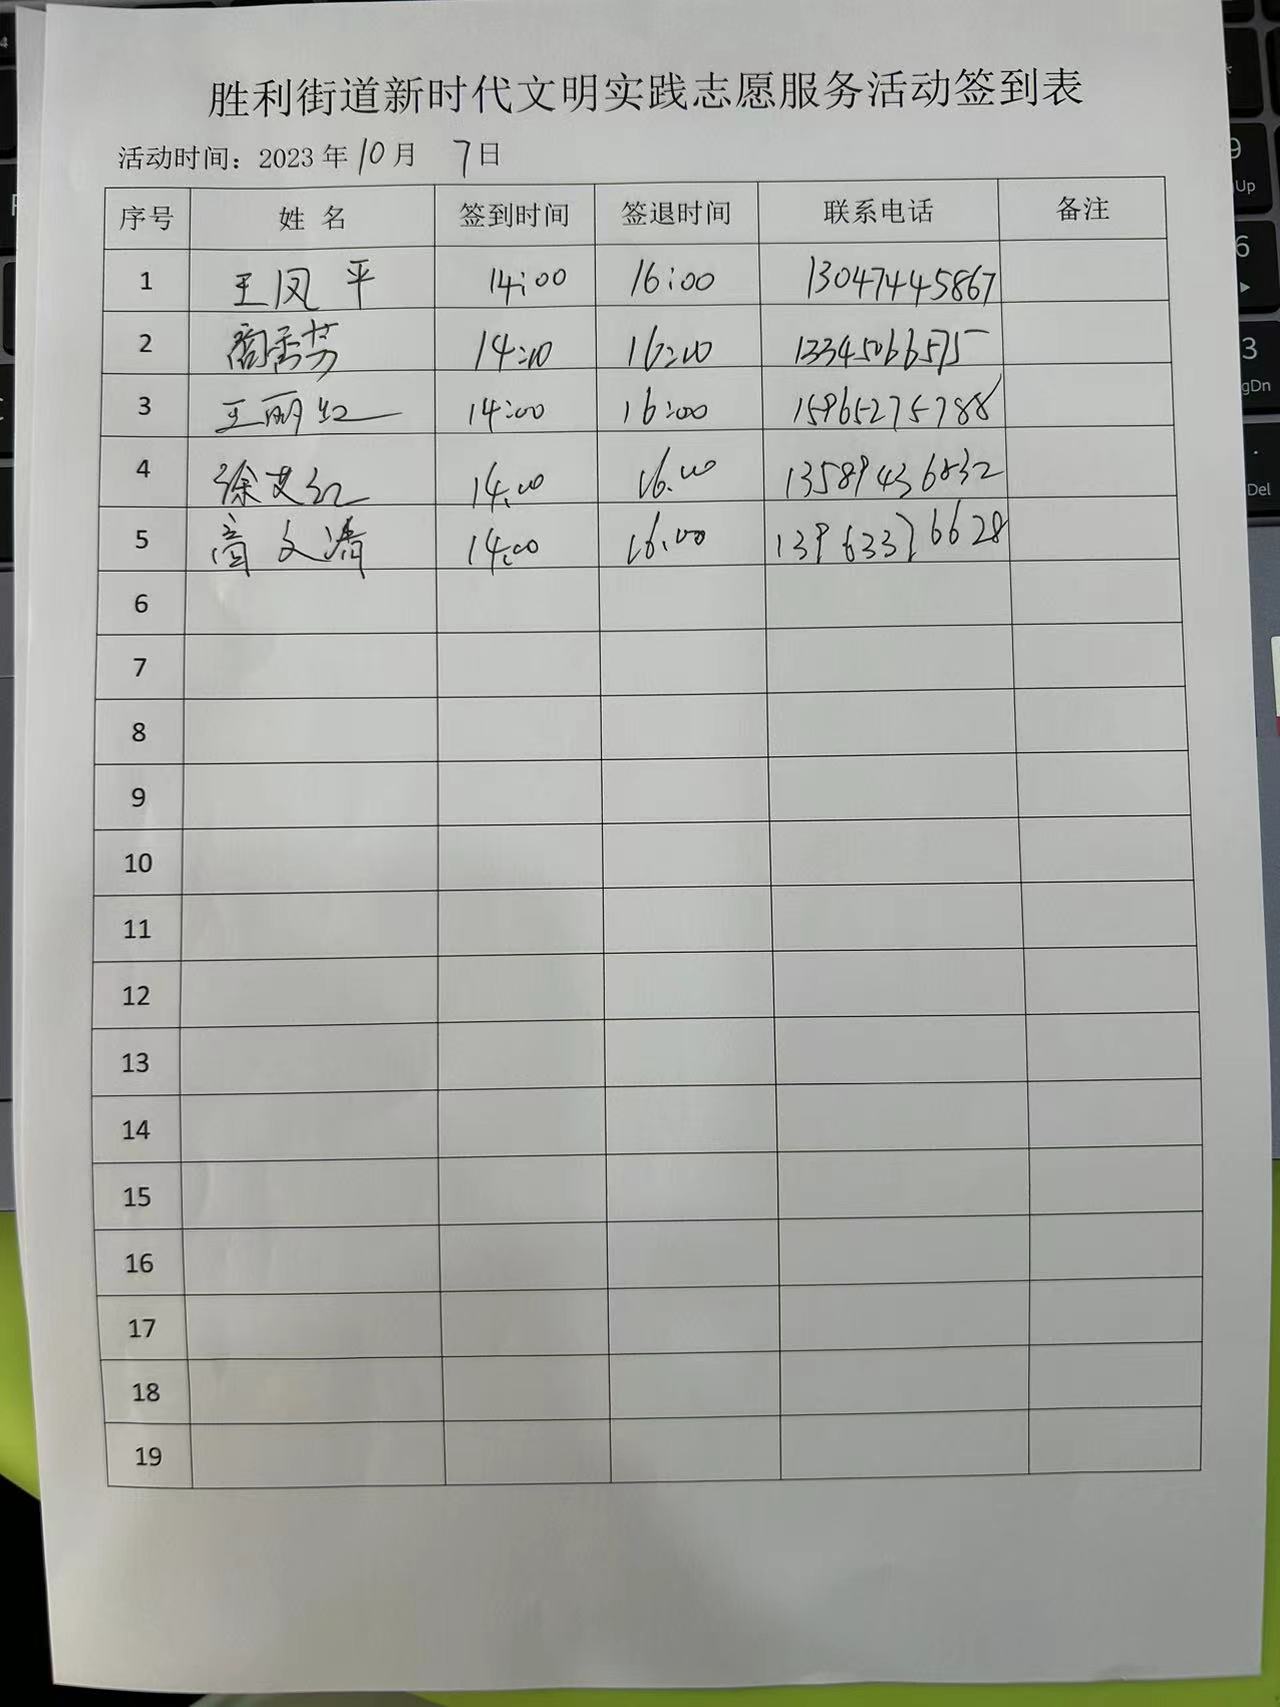 胜利街道新时代文明实践志愿服务活动签到表
活动时间：2023 年 10 月 7 日
序号 姓 名 签到时间 签退时间 联系电话 备注
1 王凤平 14:00 16:00 13047445867
2 14:00 16:00 13345066575
3 王丽红 14:00 16:00 15965275788
4 徐艾红 14:00 16:00 13589436832
5 文清 14:00 16:00 13963376628
6
7
8
9
10
11
12
13
14
15
16
17
18
19